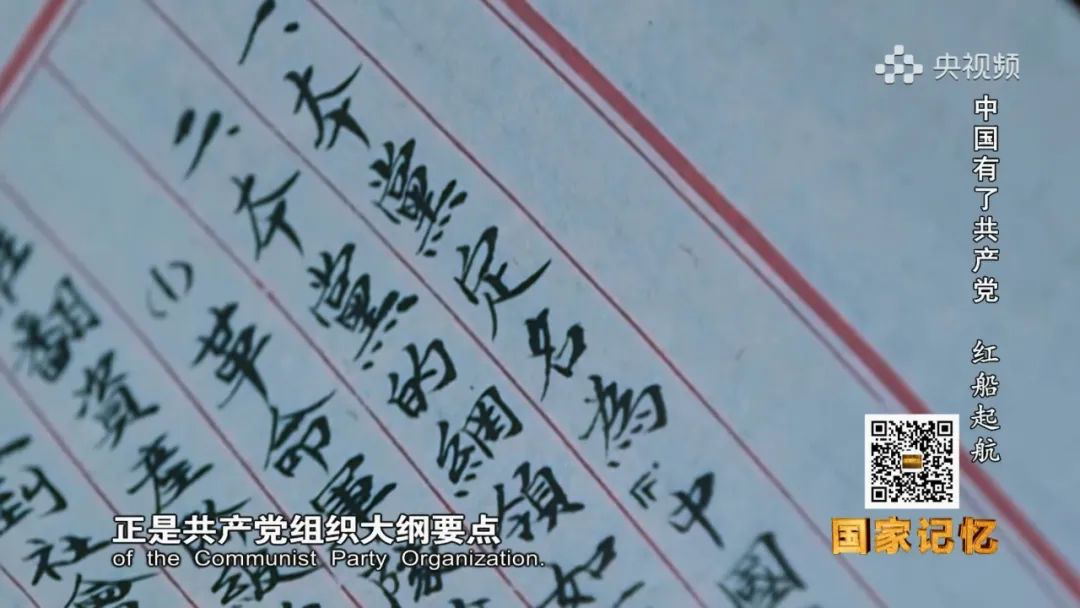 央视频
中国有了共产党 红船起航
一、本黨定名為『中國
二、本黨的綱領如
(1)革命軍隊
翻資產階級
到社會
正是共产党组织大纲要点
of the Communist Party Organization.
国家记忆